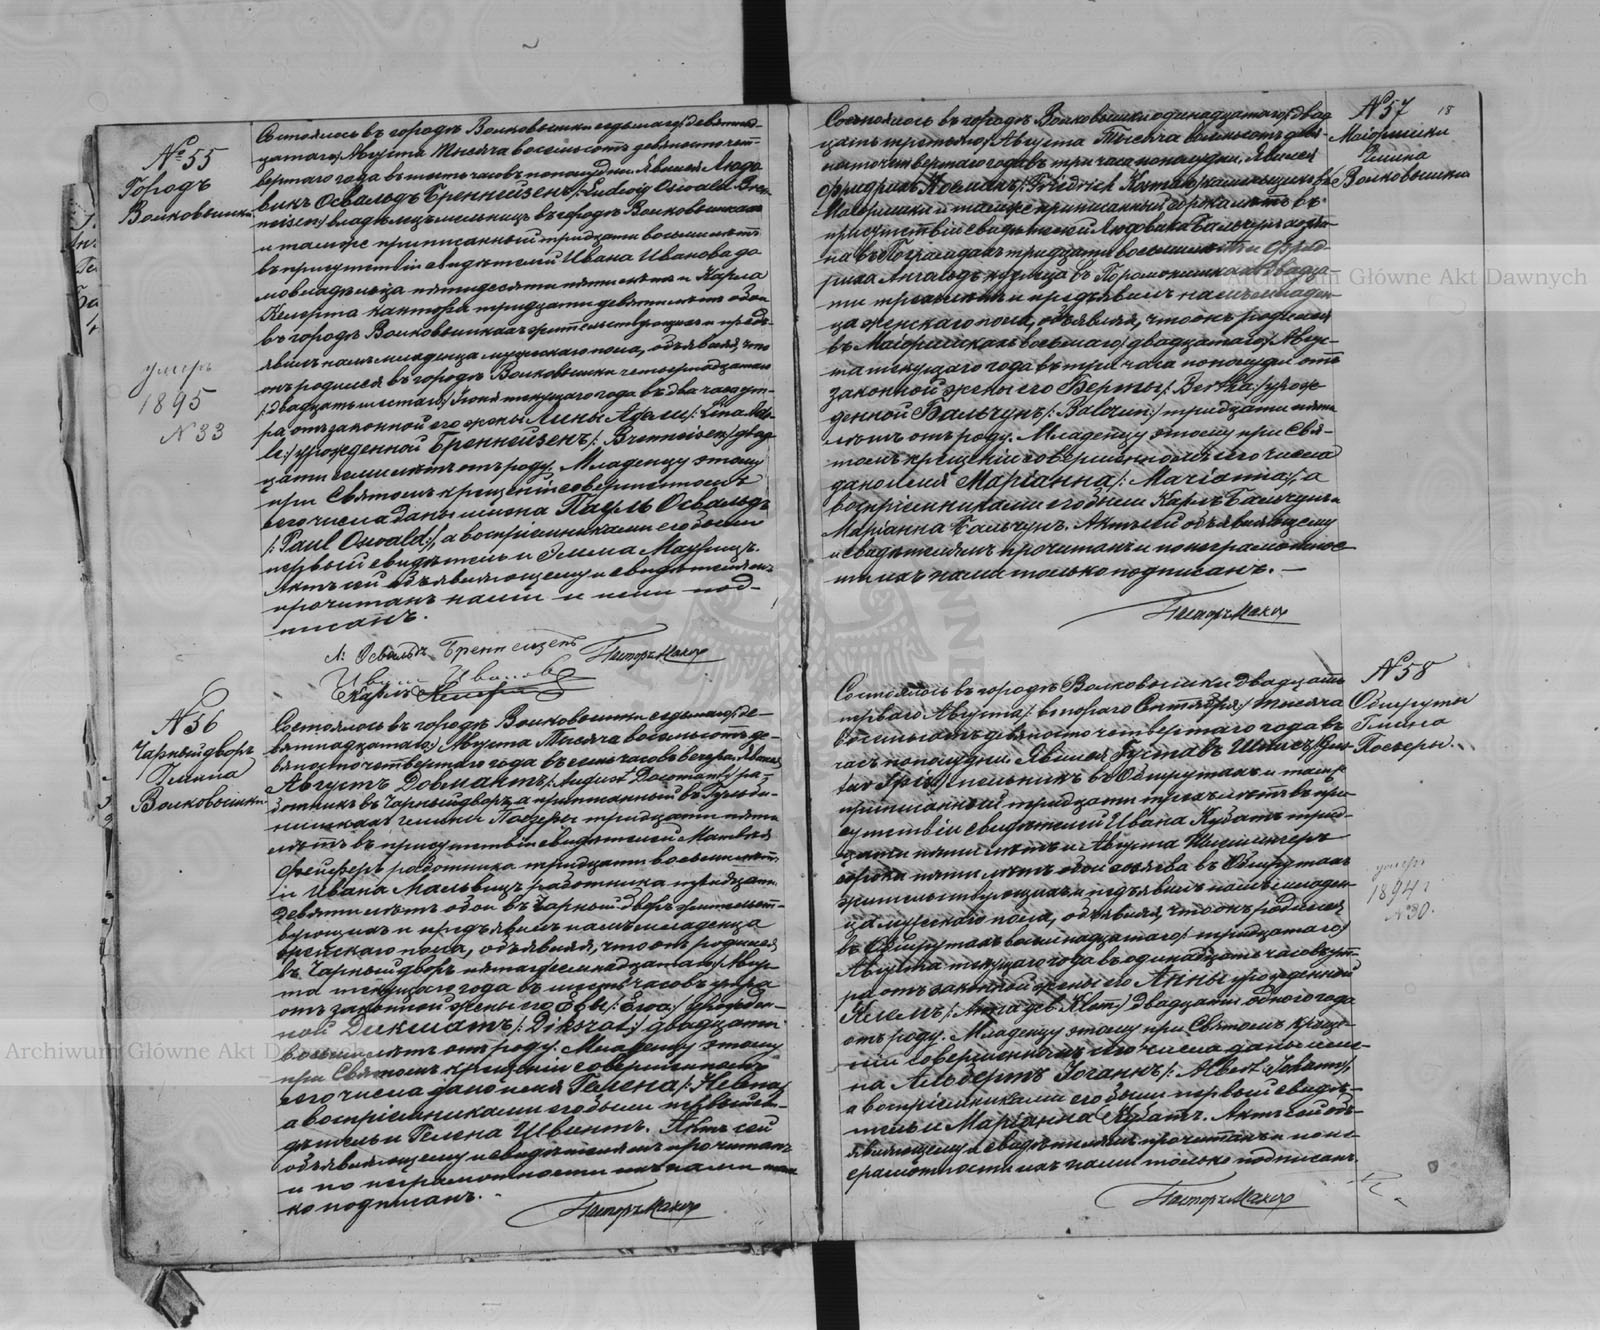 № 55
Городъ
Волковышки
умеръ
1895
N 33
Состоялось въ городѣ Волковышки седьмаго/девятнад-
цатаго/ Августа Тысяча восемьсотъ девяносто чет-
вертаго года въ часовъ пополудни. Явился Людо-
викъ Освальдъ Бреннейзенъ /: Ludwig Oswald Bren-
neisen :/ владѣлецъ мельницъ въ городѣ Волковышкахъ
и тамже приписанный тридцати восьми лѣтъ
въ присутствіи свидѣтелей Ивана Иванова до-
мовладѣльца пятидесяти пяти лѣтъ и Карла
Келерта кантора тридцати девяти лѣтъ обои
въ городѣ Волковышкахъ жительствующихъ и предъ-
явилъ намъ младенца мужескаго пола, объявляя, что
онъ родился въ городѣ Волковышки четырнадцатаго
/: двадцать шестаго :/ Іюня текущаго года въ два часа ут-
ра, отъ законной его жены Лины Адели /: Lina Ade-
le :/ урожденной Бреннейзенъ /: Brenneisen :/ двад-
цати семи лѣтъ отъ роду. Младенцу этому
при Святомъ крещеніи совершенномъ
сего числа даны имена Пауль Освальдъ
/: Paul Oswald :/, а воспріемниками его были
первый свидѣтель и Эмма Маурицъ.
Актъ сей объявляющему и свидѣтелямъ
прочитанъ нами и ими под-
писанъ.
Л. Освальдъ Бреннейзенъ Пасторъ
Иванъ Ивановъ
Карлъ
N 56
Чарныйдворъ
Гмина
Волковышки
Состоялось въ городѣ Волковышки седьмаго/де-
вятнадцатаго/ Августа Тысяча восемьсотъ де-
вяносто четвертаго года въ семь часовъ вечера. Явился
Августъ Довмантъ /: August Dowmant :/ ра-
ботникъ въ Чарныйдворъ, а приписанный въ
гмины Поезеры тридцати пяти
лѣтъ въ присутствіи свидѣтелей Матвѣя
Фейферъ работника тридцати восьми лѣтъ
и Ивана Мальвицъ работника тридцати
девяти лѣтъ обои въ Чарныйдворъ жительст-
вующихъ и предъявилъ намъ младенца
женскаго пола, объявляя, что онъ родился
въ Чарныйдворъ пятаго/семнадцатаго/ Авгус-
та текущаго года въ шесть часовъ утра
отъ законной жены его Евы /: Ewa :/ урожден-
ной Дикшатъ /: Dikszat :/ двадцати
восьми лѣтъ отъ роду. Младенцу этому
при Святомъ крещеніи совершенномъ
сего числа дано имя Гелена /: Helena :/
а воспріемниками его были первый сви-
дѣтель и Гелена Швентъ. Актъ сей
объявляющему и свидѣтелямъ прочитанъ
и по неграмотности ихъ нами толь-
ко подписанъ.
Пасторъ
N 57
18
Магоришки
Гмина
Волковышки
Состоялось въ городѣ Волковышки одинадцатаго/двад-
цать третьяго/ Августа Тысяча восемьсотъ девя-
носто четвертаго года въ три часа пополудни. Явился
Фридрихъ Косманъ /: Friedrich Kosman :/ каменьщикъ въ
Магоришки и тамже приписанный сорока лѣтъ въ
присутствіи свидѣтелей Людовика Бальчунъ
на въ тридцати восьми лѣтъ и Фрид-
риха кузнеца въ двадца-
ти трехъ лѣтъ и предъявилъ намъ младен-
ца женскаго пола, объявляя, что онъ родился
въ Магоришкахъ восьмаго/двадцатаго/ Авгус-
та текущаго года въ три часа пополудни отъ
законной жены его Берты /: Bertha :/ урож-
денной Бальчунъ /: Balczun :/ тридцати пяти
лѣтъ отъ роду. Младенцу этому при Свя-
томъ крещеніи совершенномъ сего числа
дано имя Маріанна /: Marianna :/, а
воспріемниками его были Карлъ Бальчунъ и
Маріанна Бальчунъ. Актъ сей объявляющему
и свидѣтелямъ прочитанъ и по неграмотнос-
ти ихъ нами только подписанъ. —
Пасторъ
N 58
Обшруты
Гмина
Поезеры.
умеръ
1894 г
N 30.
Состоялось въ городѣ Волковышки двадцать
перваго Августа/ втораго Сентября/ Тысяча
восемьсотъ девяносто четвертаго года въ
часъ пополудни. Явился Густавъ Шписъ /: Gus-
tav Spis :/ мельникъ въ Обшрутахъ и тамже
приписанный тридцати трехъ лѣтъ въ при-
сутствіи свидѣтелей Ивана Кубатъ трид-
цати пяти лѣтъ и Августа
сорока пяти лѣтъ обои хозяева въ Обшрутахъ
жительствующихъ и предъявилъ намъ младен-
ца мужескаго пола, объявляя, что онъ родился
въ Обшрутахъ восемнадцатаго/ тридцатаго/
Августа текущаго года въ одинадцать часовъ ут-
ра отъ законной жены его Анны урожденной
Клемъ /: Anna geb Klem :/ двадцати одного года
отъ роду. Младенцу этому при Святомъ креще-
ніи совершенномъ сего числа даны име-
на Альбертъ Іоганнъ /: Albert Johann :/,
а воспріемниками его были первый свидѣ-
тель и Маріанна Кубатъ. Актъ сей объ-
являющему и свидѣтелямъ прочитанъ и по не-
грамотности ихъ нами только подписанъ.
Пасторъ
Archiwum Główne Akt Dawnych
Archiwum Główne Akt Dawnych